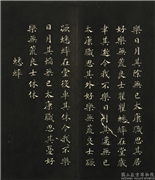 樂日月其除無已太康職思其居
好樂無荒良士瞿瞿蟋蟀在堂歲
聿其逝今我不樂日月其邁無已
太康職思其外好樂無荒良士蹶
蹶蟋蟀在堂役車其休今我不樂
日月其慆無已太康職思其憂好
樂無荒良士休休
蟋蟀